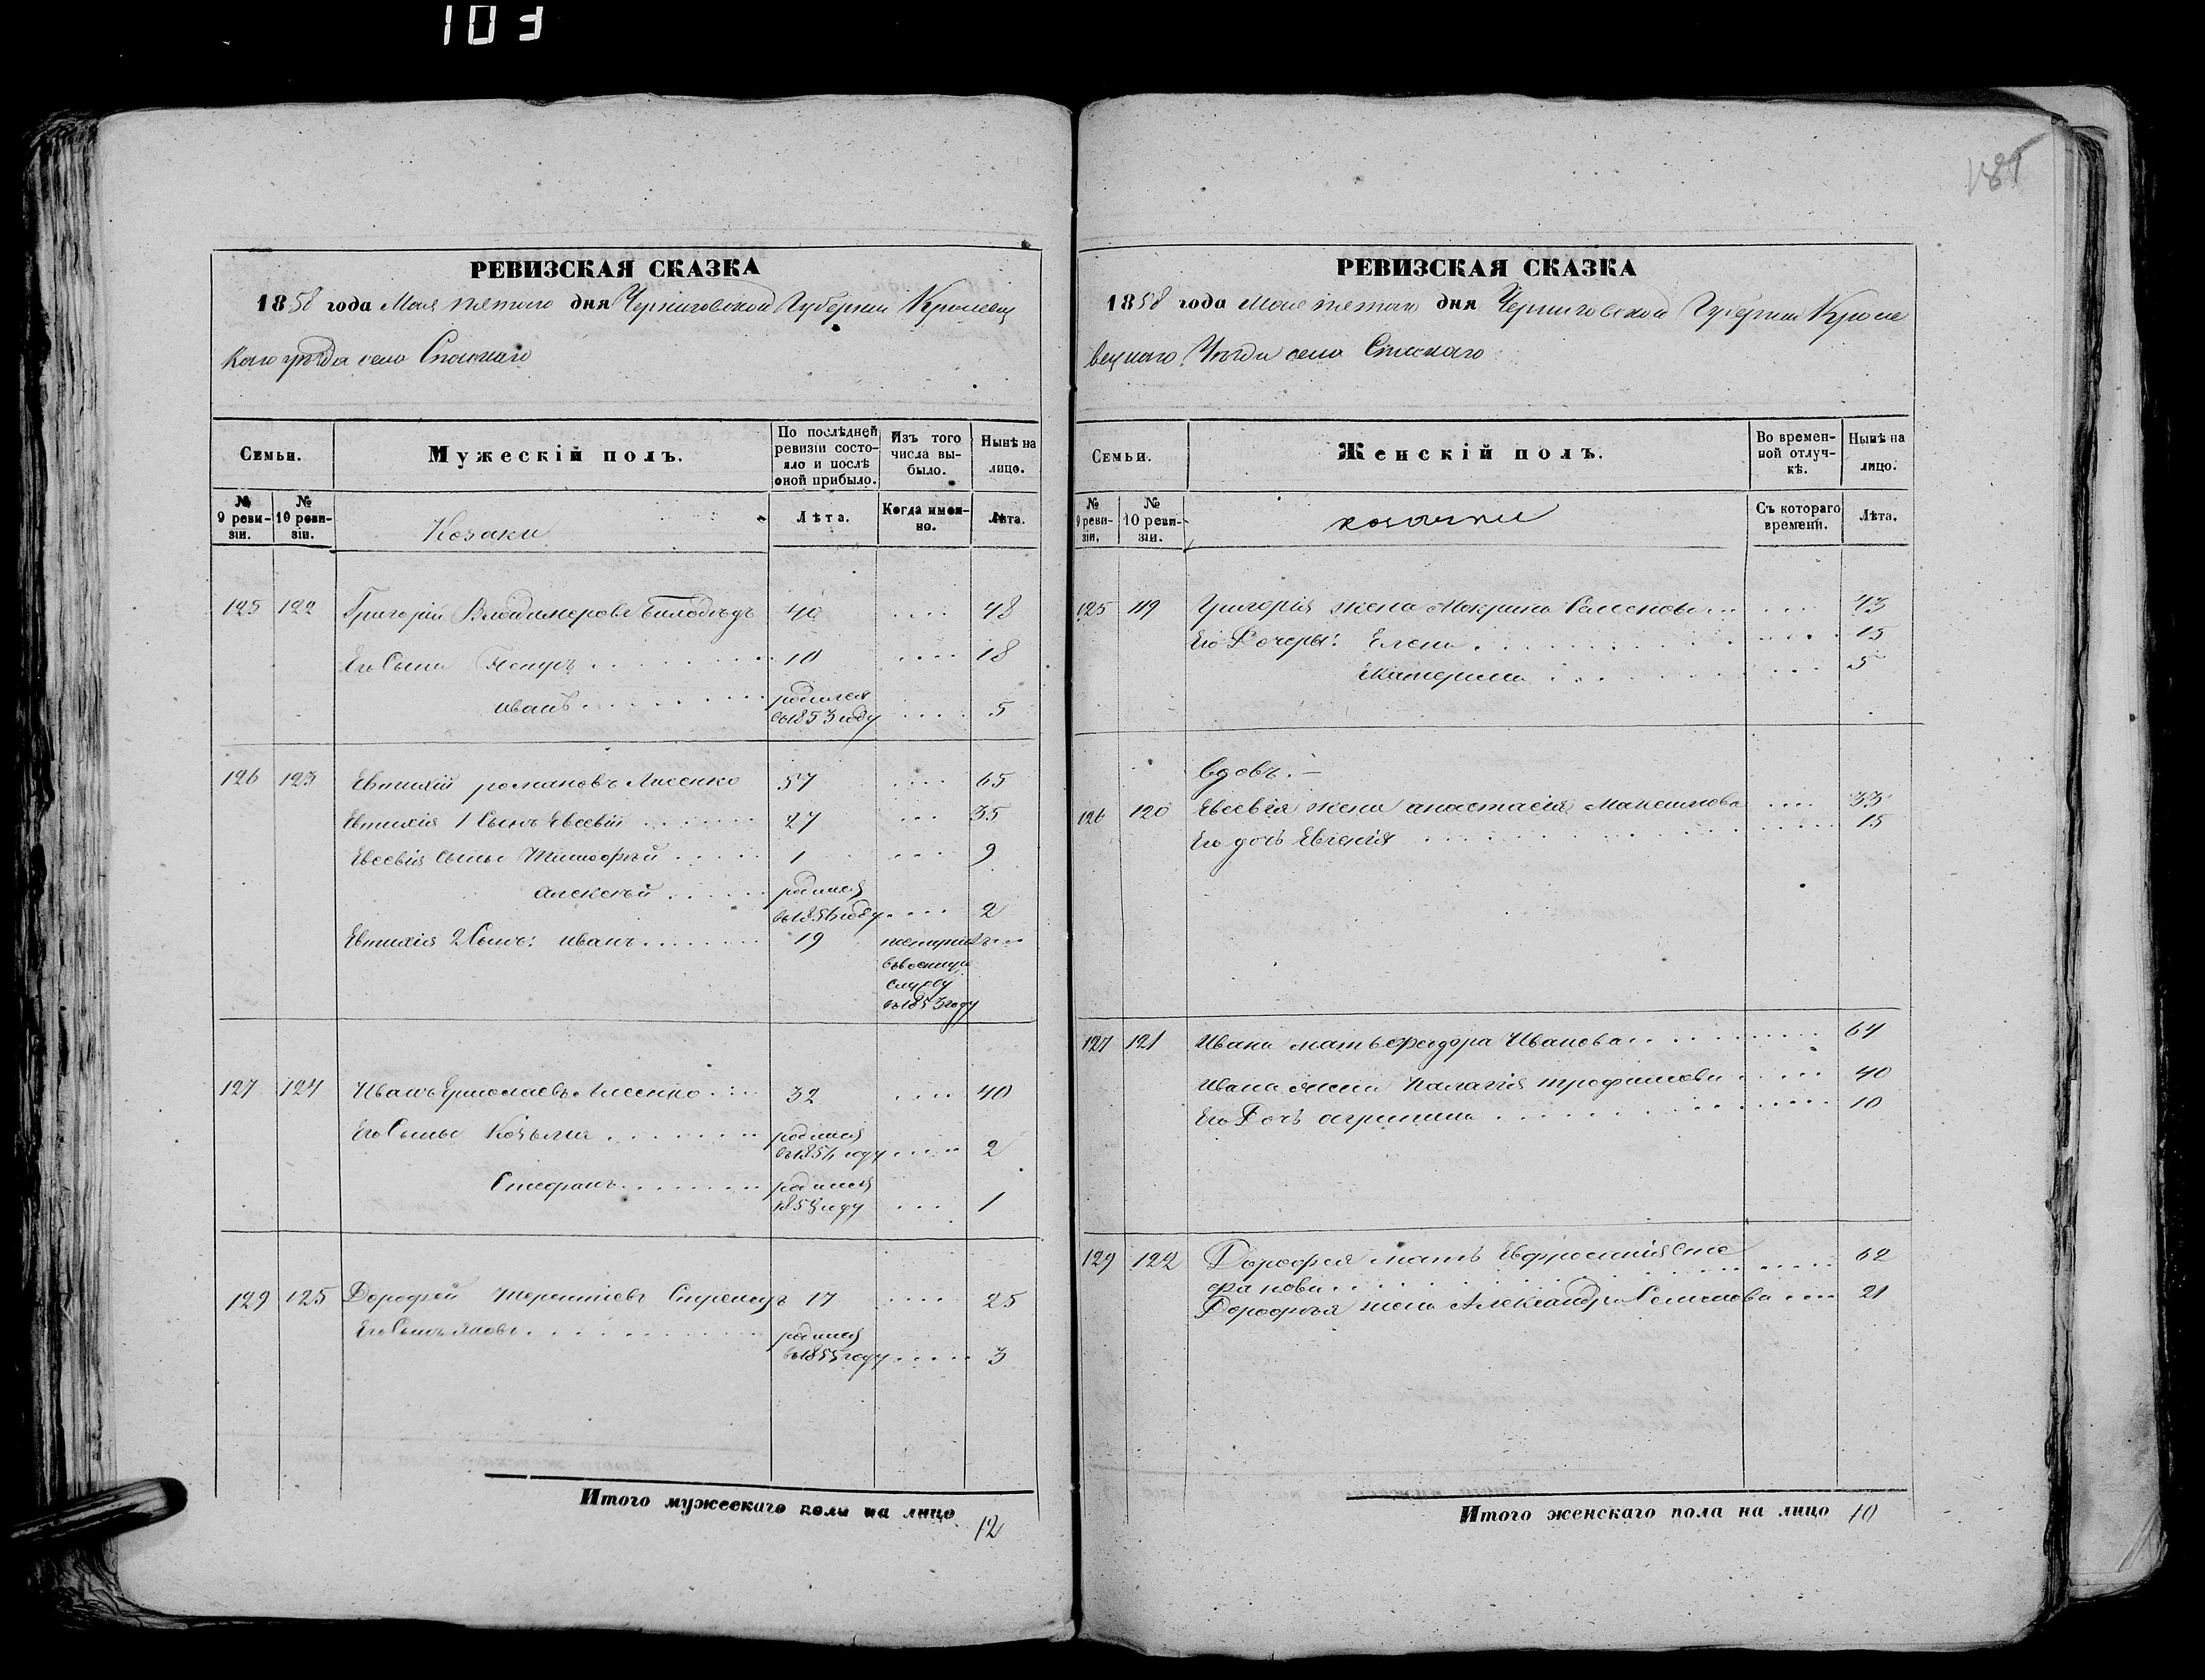 103
185
РЕВИЗСКАЯ СКАЗКА
1858 года Мая пятого дня Черниговской Губернии Кролевец
кого уезда села Спаскаго
Семьи.
Мужескій полъ.
По послѣдней ревизіи состояло и послѣ оной прибыло.
Изъ того числа выбыло.
Нынѣ на лицо.
№ 9 ревизіи.
№ 10 ревизіи.
Козаки
Лѣта.
Когда именно.
Лѣта.
125 122 Григорій Владимеровъ Билодѣдъ 40 .... 48
Его Сыни 10 .... 18
иванъ родился въ 1853 году .... 5
126 123 Евтихій романовъ Лисенко 57 ... 65
Евтихія 1 Сынъ Евсевій 27 ... 35
Евсевія сыны Тимофѣй 1 .... 9
алексѣй родился въ 1856 году .... 2
Евтихія 2 Сынъ: иванъ 19 поступилъ
въ военную
службу
въ 1853 году
127 124 Иванъ Ермолаевъ Лисенко 32 .... 40
Его Сыны Козьма родился въ 1856 году .... 2
Стефанъ родился 1858 году ... 1
129 125 Дорофей терентіевъ 17 .... 25
Его Сынъ яковъ родился въ 1855 году .... 3
Итого мужескаго пола на лицо 12
РЕВИЗСКАЯ СКАЗКА
1858 года Мая пятого дня Черниговской Губернии Кроле
вецкаго Уезда села Спаскаго
Семьи.
Женскій полъ.
Во временной отлучкѣ.
Нынѣ на лицо.
№ 9 ревизіи.
№ 10 ревизіи.
козачки
Съ котораго времени.
Лѣта.
125 119 Григорія жена Мокрина Семенова .... 43
Его Дочеры: Елена .... 15
Екатерина ... 5
вдовъ.—
126 120 Евсевія жена анастасія Максимова .... 33
Его дочь Евгенія .... 15
127 121 Ивана мать Феодора Иванова .... 64
Ивана жена Палагія трофимова .... 40
Его Дочь агрипина .... 10
129 122 Дорофея мать Евфросинія Сте
фанова .... 62
Дорофѣя жена Александра Семенова .... 21
Итого женскаго пола на лицо 10